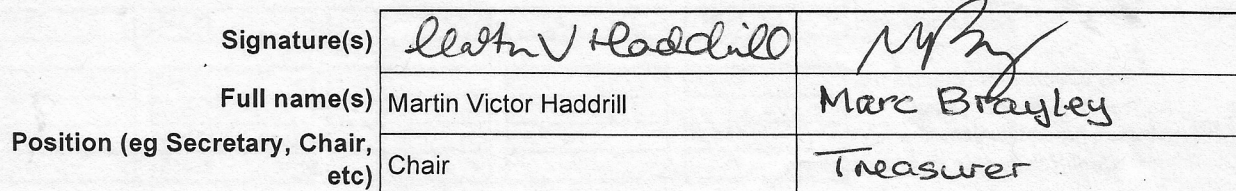 Signature(s) Martin V Haddrill
Full name(s) Martin Victor Haddrill Marc Brayley
Position (eg Secretary, Chair,
etc) Chair Treasurer